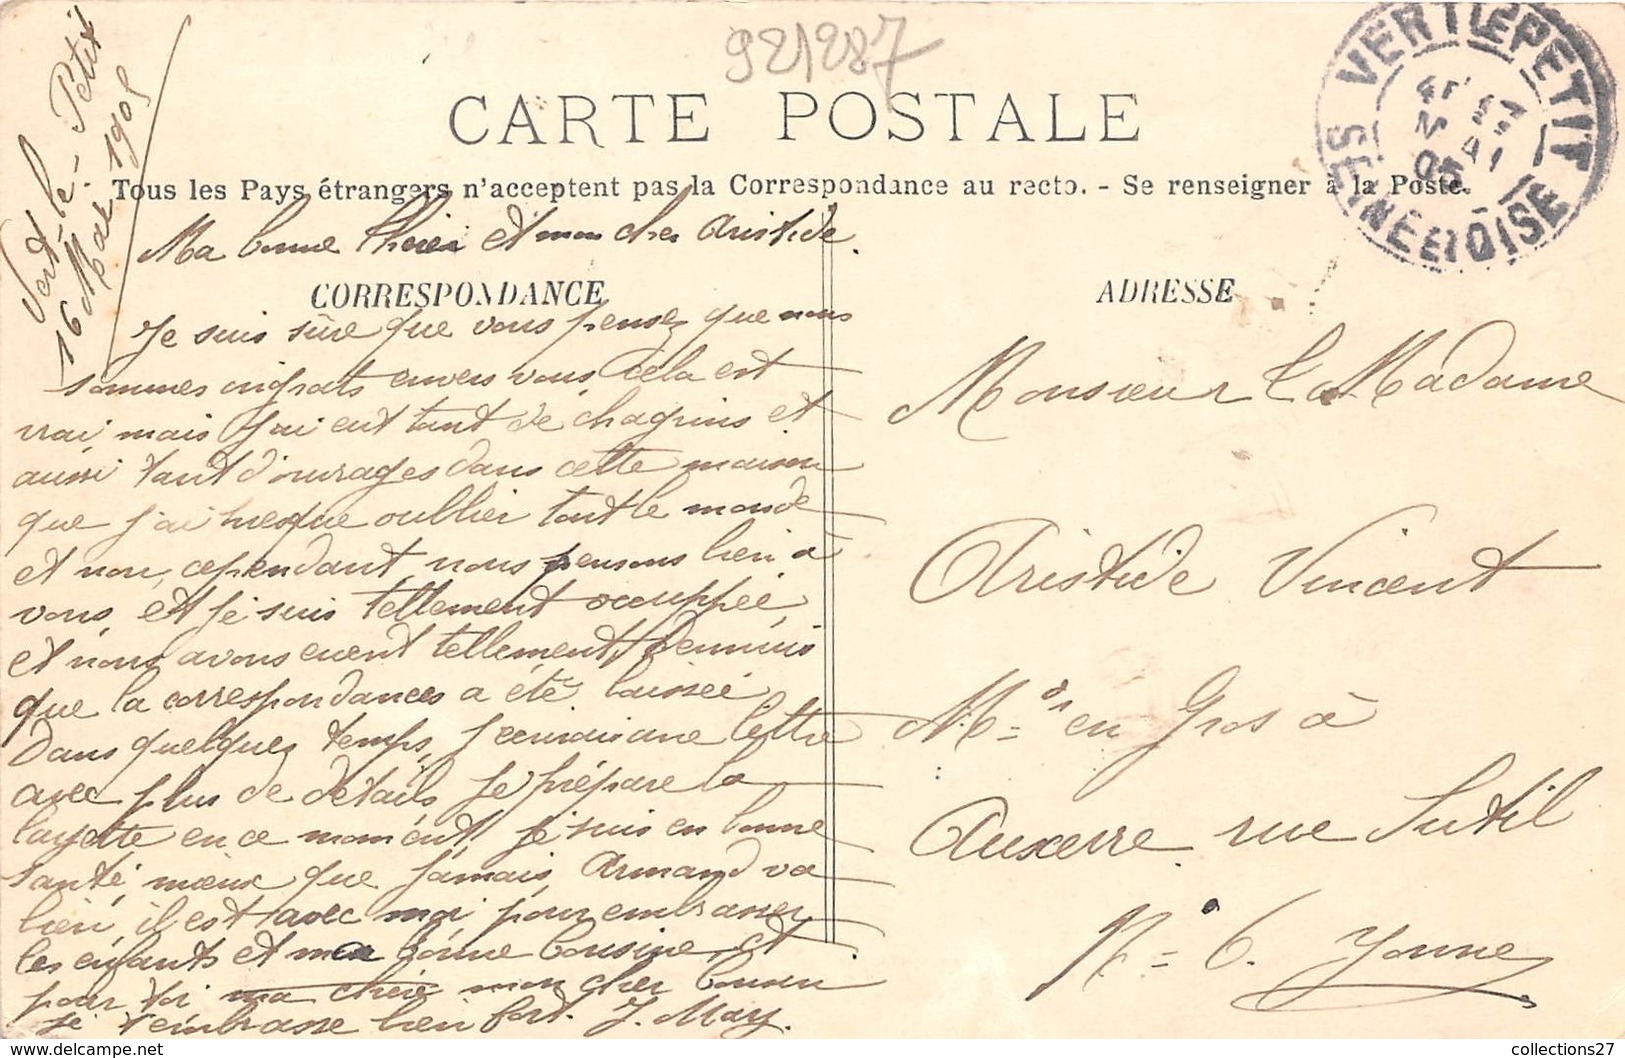 921287
CARTE POSTALE
Tous les Pays étrangers n'acceptent pas la Correspondance au recto. - Se renseigner à la Poste.
VERT LE PETIT
SEINE ET OISE
05
Vert-le-Petit
16 Mai 1905
Ma bonne et mon cher Aristide
CORRESPONDANCE
Je suis sûre que vous pensez que nous
sommes ingrats envers vous, cela est
vrai mais j'ai eut tant de chagrins et
aussi tant d'ouvrages dans cette maison
que j'ai presque oublier tout le monde
et non, cependant, nous pensons bien à
vous, et je suis tellement occuppée
et nous avons euent tellement d'ennuis
que la correspondances a été laissée
Dans quelquez temps, j'ecrirais une lettre
avec plus de détails, je prépare la
layette en ce moment, je suis en bonne
santé, mieux que jámais, Armand va
bien, il est avec moi pour embrasser
les enfants et ma bonne Cousine, et
pour toi ma chère mon cher Cousin
je t'embrasse bien fort. J. Mary.
ADRESSE
Monsieur & Madame
Aristide Vincent
M=d en Gros à
Auxerre rue Sutil
N= 6. Yonne
collections27